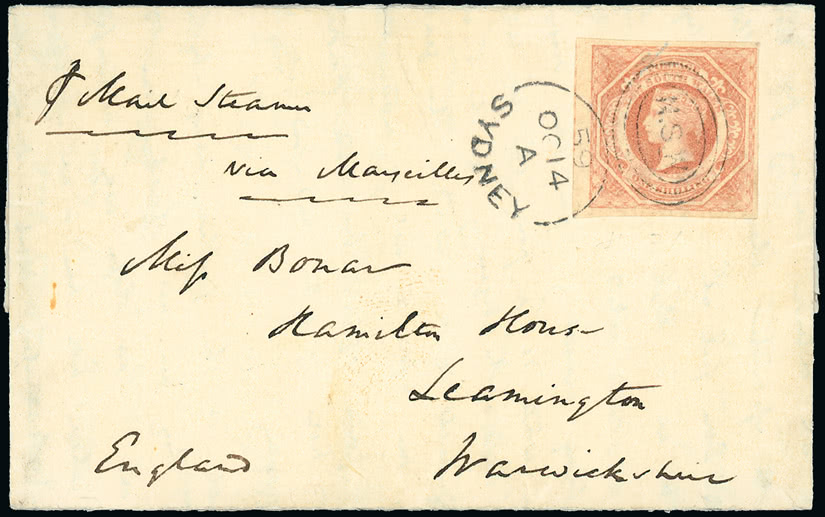 ⅌ Mail Steamer
via Marseilles
Miss Bonar
Hamilton House
Leamington
Warwickshire
England
SYDNEY
A
OC 14
59
N.S.W
SOUTH
SHILLING